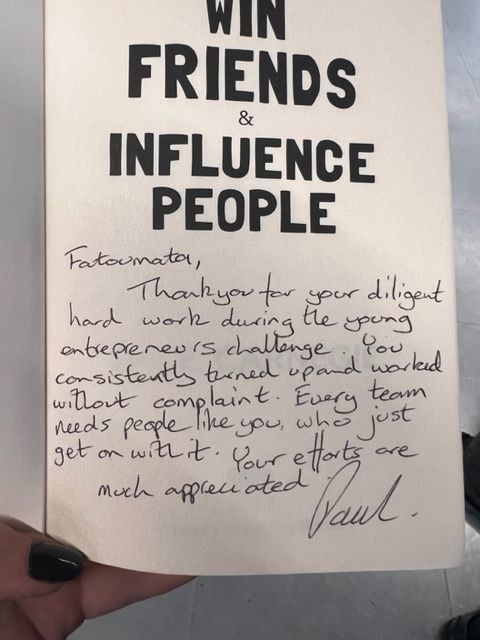 WIN
FRIENDS
&
INFLUENCE
PEOPLE
Fatoumata,
Thankyou for your diligent
hard work during the young
entrepreneurs challenge. You
consistently turned up and worked
without complaint. Every team
needs people like you, who just
get on with it. Your efforts are
much appreciated
Paul.